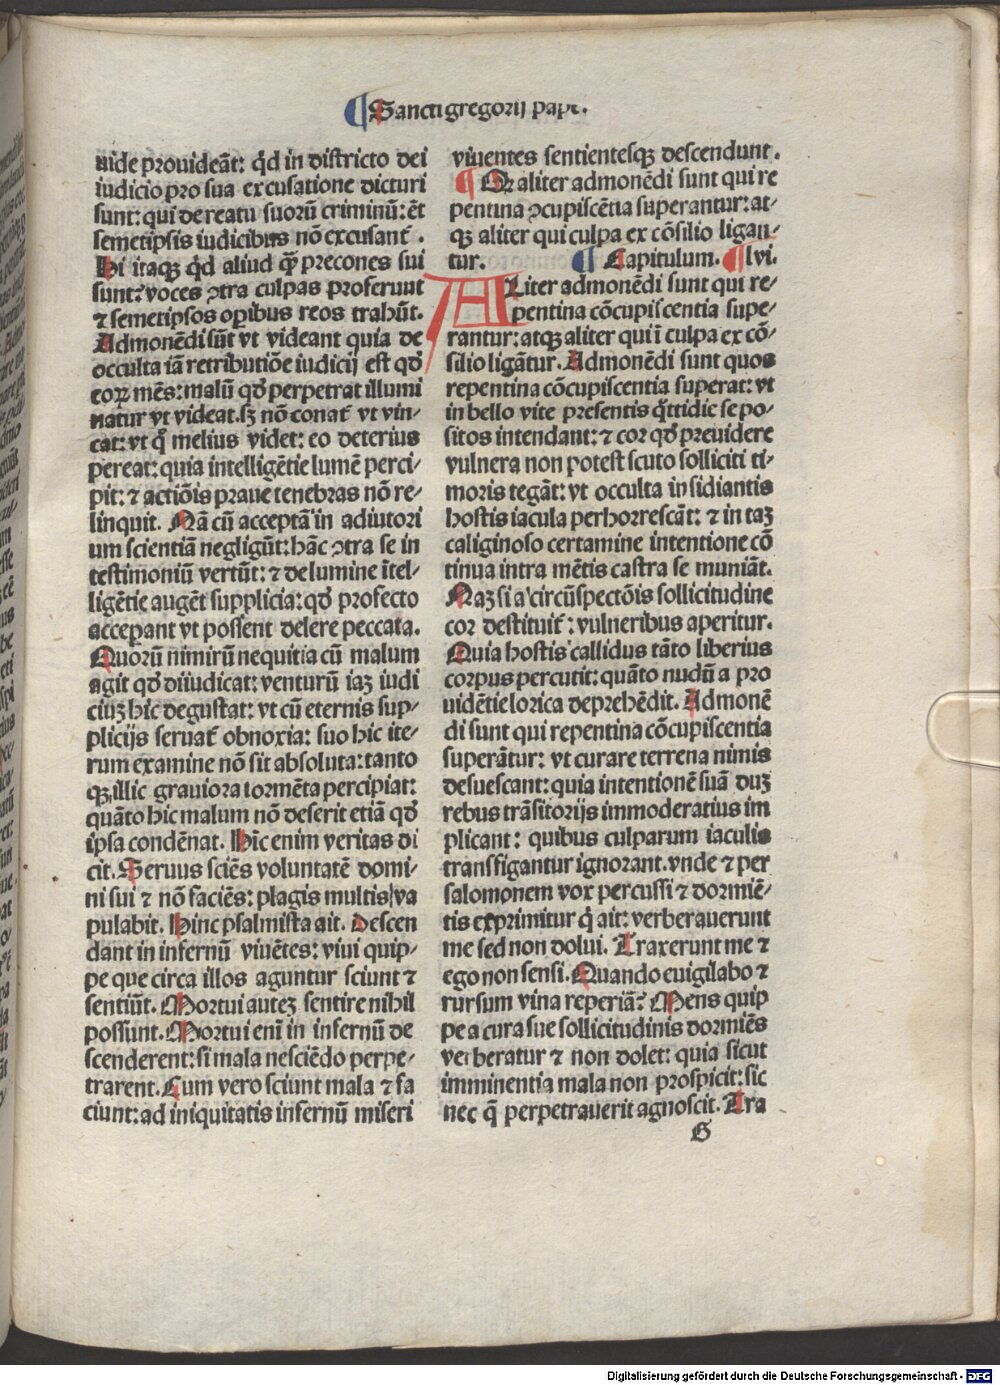 ¶ Sancti gregorij pape.
uide prouideāt: qd̄ in districto dei
iudicio pro sua excusatione dicturi
sunt: qui de reatu suorū criminū: ēt
semetipsis iudicibus nō excusant̄.
Hi itaqꝫ qd̄ aliud qꝫ̄ precones sui
sunt? voces ꝯtra culpas proferunt
⁊ semetipsos oꝑibus reos trahūt.
Admonēdi sūt vt videant quia de
occulta iā retributiōe iudicij est qd̄
eoꝝ mēs: malū qd̄ perpetrat illumi
natur vt videat. sꝫ nō conat̄ vt vin⸗
cat: vt q̄ melius videt: eo deterius
pereat: quia intelligētie lumē perci⸗
pit: ⁊ actiōis praue tenebras nō re⸗
linquit. Nā cū acceptā in adiutori
um scientiā negligūt: hāc ꝯtra se in
testimoniū vertūt: ⁊ de lumine ītel⸗
ligētie augēt supplicia: qd̄ profecto
acceperant vt possent delere peccata.
Quorū nimirū nequitia cū malum
agit qd̄ diiudicat: venturū iaꝫ iudi
ciuꝫ hic degustat: vt cū eternis sup⸗
plicijs seruat̄ obnoxia: suo hic ite⸗
rum examine nō sit absoluta: tanto
qꝫ illic grauiora tormēta percipiat:
quāto hic malum nō deserit etiā qd̄
ipsa condēnat. Hīc enim veritas di
cit. Seruus sciēs voluntatē domi⸗
ni sui ⁊ nō faciēs: plagis multis va
pulabit. Hinc psalmista ait. Descen
dant in infernū viuētes: viui quip⸗
pe que circa illos aguntur sciunt ⁊
sentiūt. Mortui auteꝫ sentire nihil
possunt. Mortui enī in infernū de
scenderent: si mala nesciēdo perpe⸗
trarent. Cum vero sciunt mala ⁊ fa
ciunt: ad iniquitatis infernū miseri
viuentes sentientesqꝫ descendunt.
¶ Qꝛ aliter admonēdi sunt qui re
pentina ꝯcupiscētia superantur: at⸗
qꝫ aliter qui culpa ex cōsilio ligan⸗
tur. ¶ Capitulum. ¶ lvi.
ALiter admonēdi sunt qui re⸗
pentina cōcupiscentia supe⸗
rantur: atqꝫ aliter qui ī culpa ex cō⸗
silio ligātur. Admonēdi sunt quos
repentina cōcupiscentia superat: vt
in bello vite presentis q̄ttidie se po⸗
sitos intendant: ⁊ cor qd̄ preuidere
vulnera non potest scuto solliciti ti⸗
moris tegāt: vt occulta insidiantis
hostis iacula perhorrescāt: ⁊ in taꝫ
caliginoso certamine intentione cō
tinua intra mētis castra se muniāt.
Naꝫ si a circūspectōis sollicitudine
cor destituit̄: vulneribus aperitur.
Quia hostis callidus tāto liberius
corpus percutit: quāto nudū a pro
uidētie lorica deprehēdit. Admonē
di sunt qui repentina cōcupiscentia
superātur: vt curare terrena nimis
desuescant: quia intentionē suā duꝫ
rebus trāsitorijs immoderatius im
plicant: quibus culparum iaculis
transfigantur ignorant. vnde ⁊ per
salomonem vox percussi ⁊ dormiē⸗
tis exprimitur q̇ ait: verberauerunt
me sed non dolui. Traxerunt me ⁊
ego non sensi. Quando euigilabo ⁊
rursum vina reperiā? Mens quip
pe a cura sue sollicitudinis dormiēs
verberatur ⁊ non dolet: quia sicut
imminentia mala non prospicit: sic
nec q̄ perpetrauerit agnoscit. Tra
G
Digitalisierung gefördert durch die Deutsche Forschungsgemeinschaft - DFG